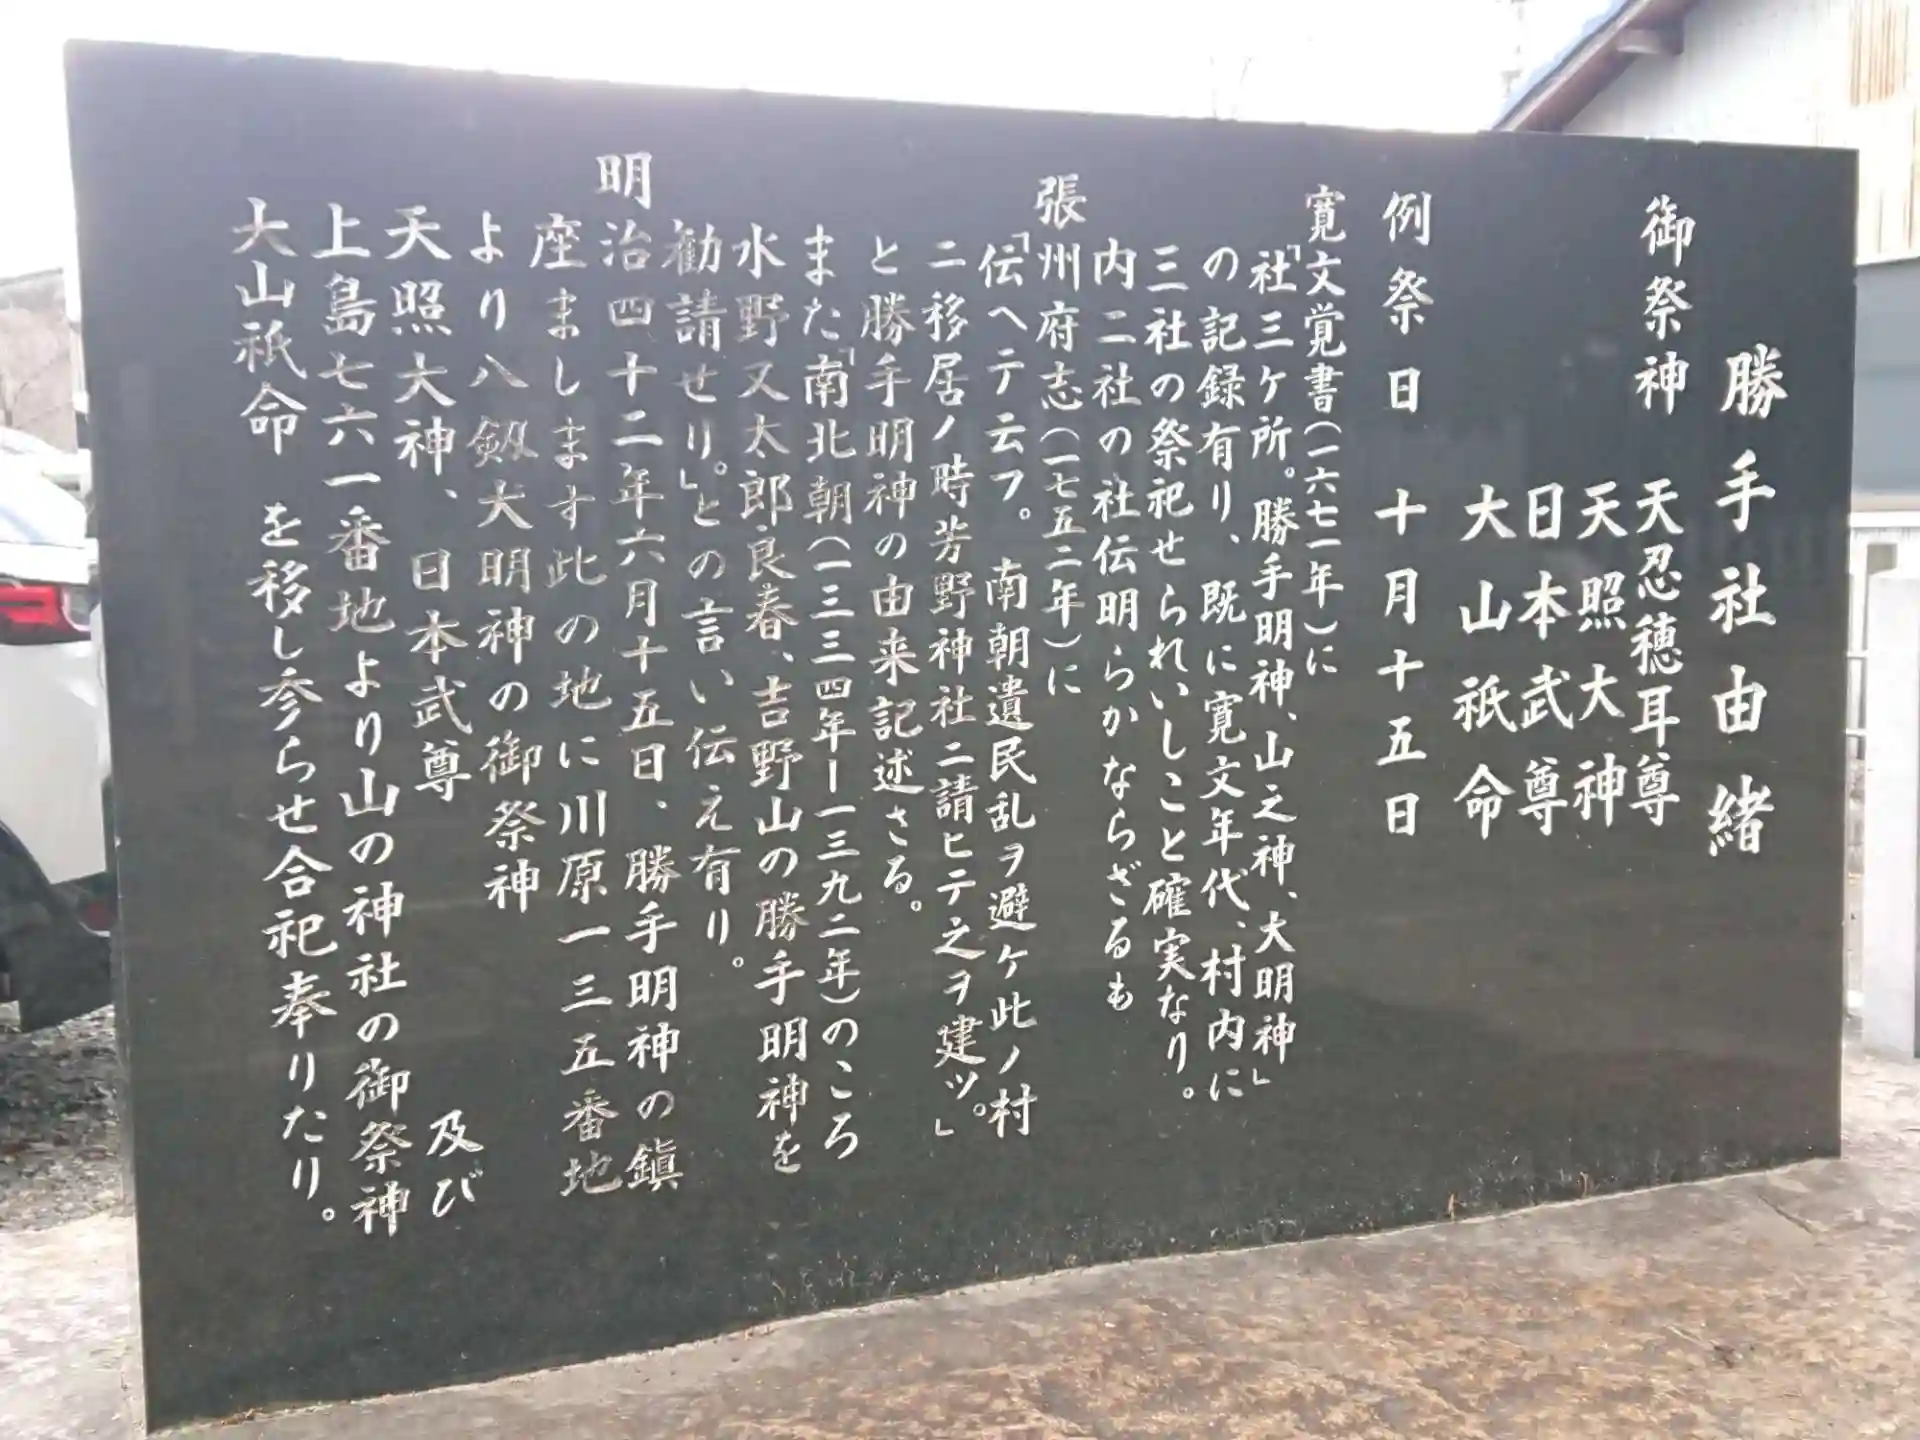 勝手社由緒
御祭神 天忍穂耳尊
天照大神
日本武尊
大山祇命
例祭日 十月十五日
寛文覚書(一六七一年)に
「社三ケ所。勝手明神、山之神、大明神」
の記録有り、既に寛文年代、村内に
三社の祭祀せられいしこと確実なり。
内二社の社伝明らかならざるも
張州府志(一七五二年)に
「伝ヘテ云フ。南朝遺民乱ヲ避ケ此ノ村
ニ移居ノ時芳野神社ニ請ヒテ之ヲ建ツ。」
と勝手明神の由来記述さる。
また「南北朝(一三三四年ー一三九二年)のころ
水野又太郎良春、吉野山の勝手明神を
勧請せり。」との言い伝え有り。
明治四十二年六月十五日、勝手明神の鎮
座まします此の地に川原一三五番地
より八劔大明神の御祭神
天照大神、日本武尊 及び
上島七六一番地より山の神社の御祭神
大山祇命 を移し参らせ合祀奉りたり。